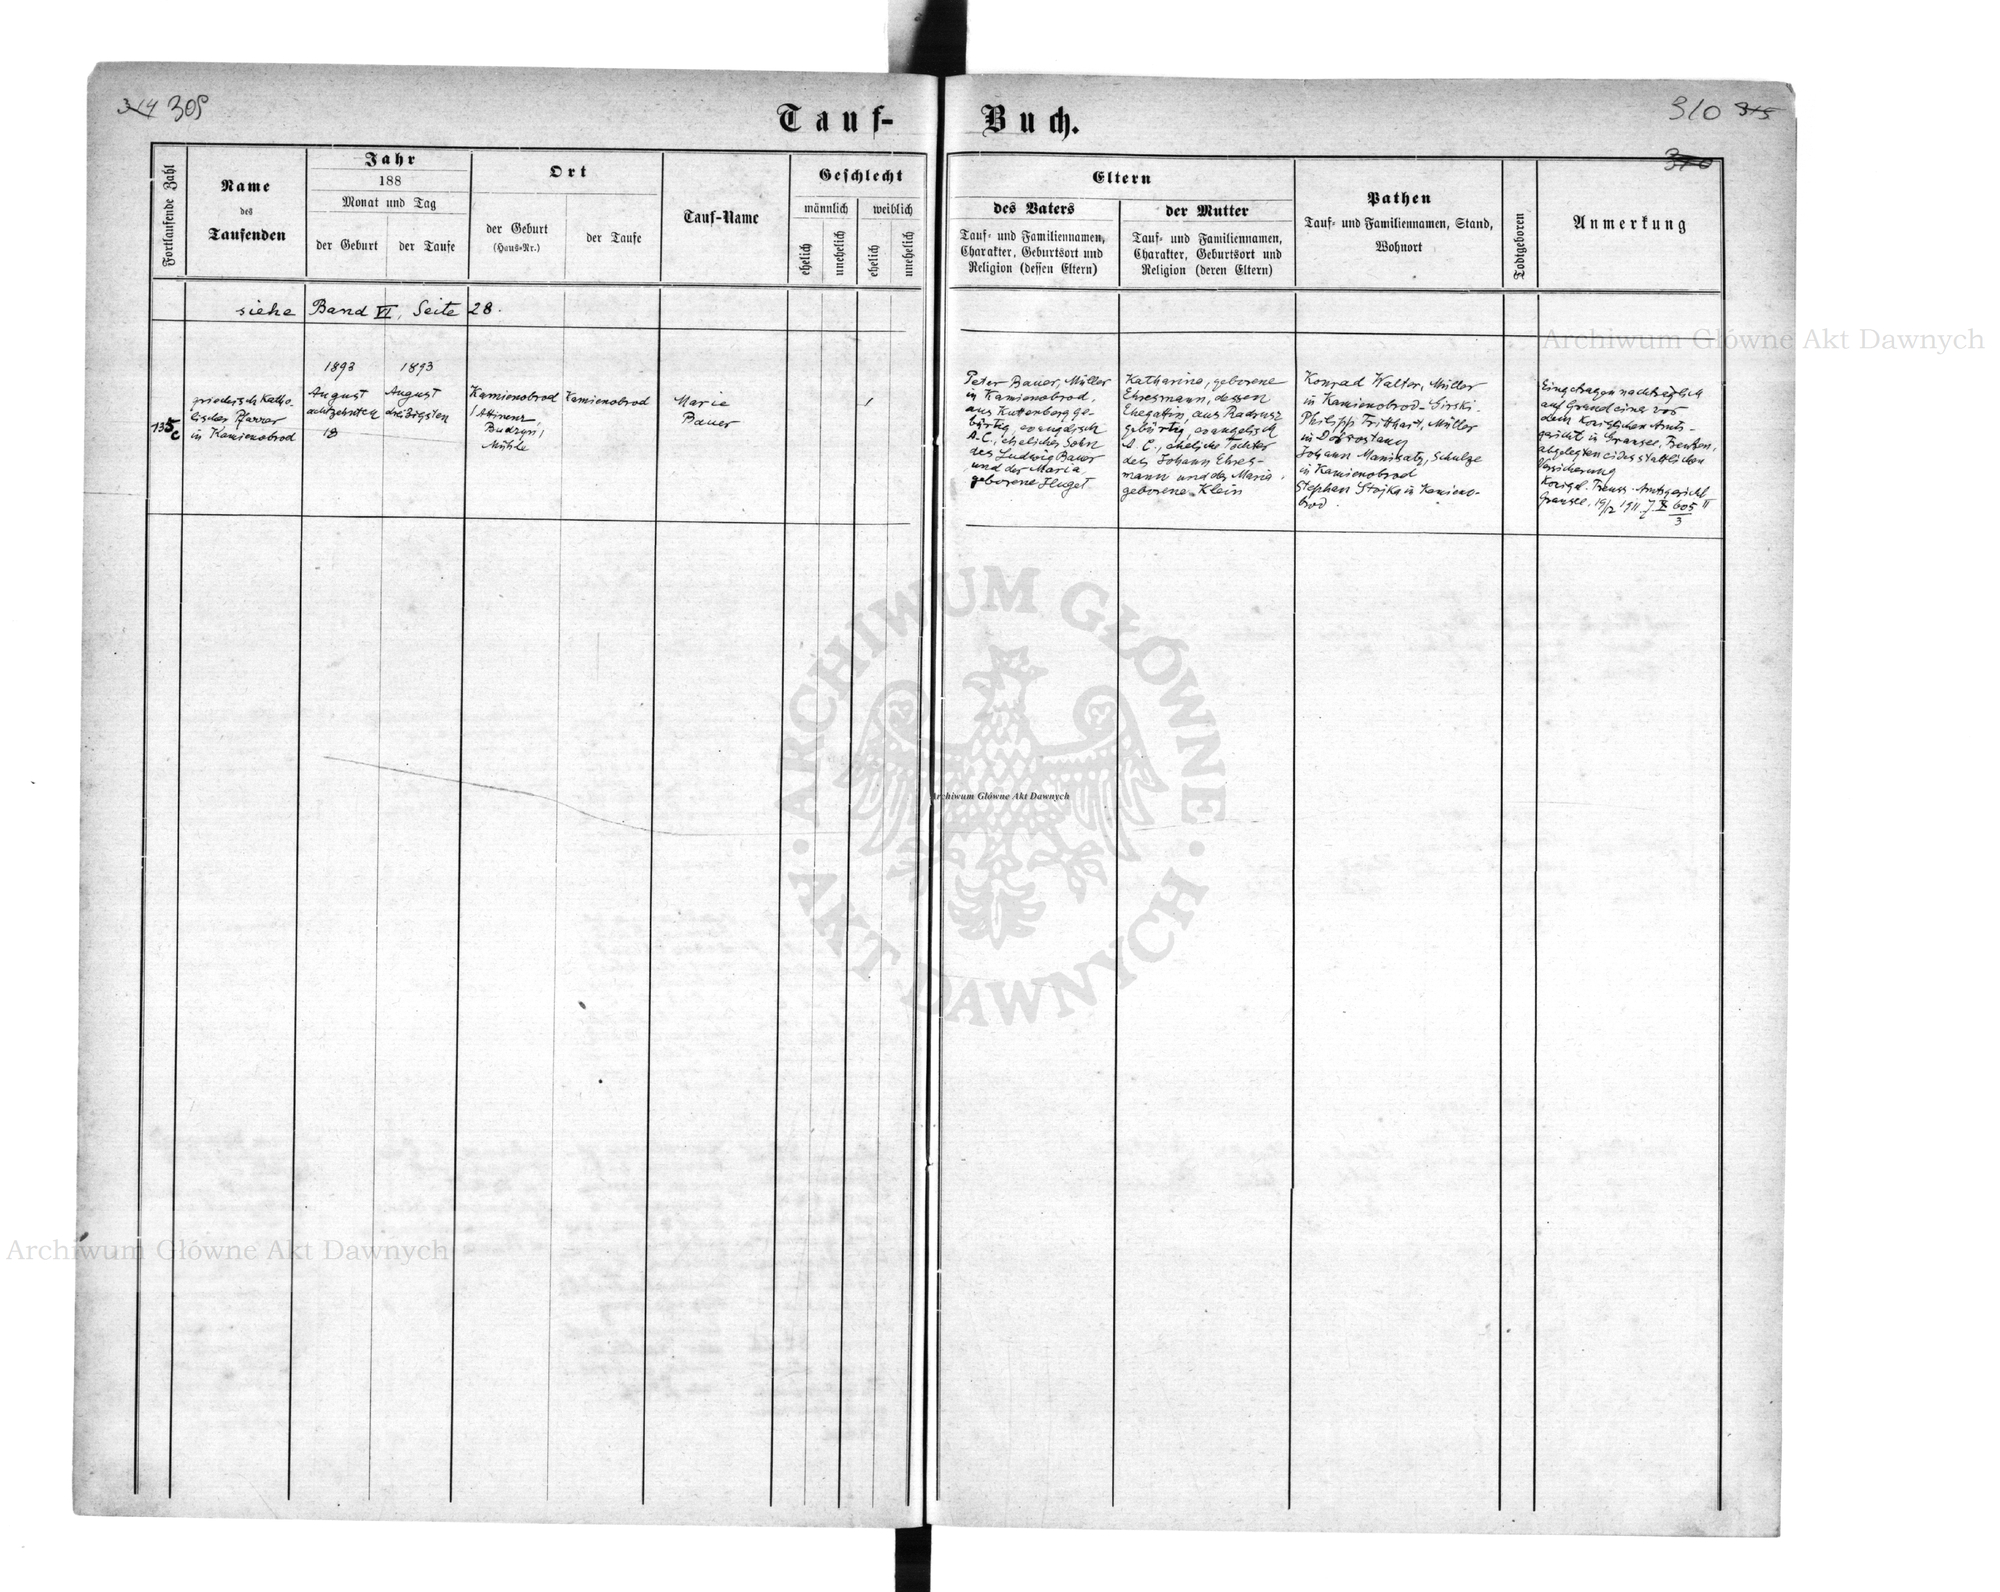 314 309
Tauf-Buch.
310 315
310
Fortlaufende Zahl
Name
des
Taufenden
Jahr
188
Monat und Tag
der Geburt
der Taufe
Ort
der Geburt
(Haus-Nr.)
der Taufe
Tauf-Name
Geschlecht
männlich
weiblich
ehelich
unehelich
ehelich
unehelich
Eltern
des Vaters
Tauf- und Familiennamen,
Charakter, Geburtsort und
Religion (dessen Eltern)
der Mutter
Tauf- und Familiennamen,
Charakter, Geburtsort und
Religion (deren Eltern)
Pathen
Tauf- und Familiennamen, Stand,
Wohnort
Todtgeboren
Anmerkung
siehe Band VI, Seite 28.
135c
griechisch Katho-
lischer Pfarrer
in Kamienobrod
1893
August
achtzehnten
18
1893
August
dreißigsten
Kamienobrod
(Attinenz,
Budzyń)
Mühle
Kamienobrod
Marie
Bauer
1
Peter Bauer, Müller
in Kamienobrod,
aus Kuttenberg ge-
bürtig, evangelisch
A. C., ehelicher Sohn
des Ludwig Bauer
und der Maria,
geborene Huget
Katharina, geborene
Ehresmann, dessen
Ehegattin, aus Radrusz
gebürtig, evangelisch
A. C., eheliche Tochter
des Johann Ehres-
mann und der Maria,
geborene Klein
Konrad Walter, Müller
in Kamienobrod-Girski.
Philipp Fritthart, Müller
in Dobrostany
Johann Manisatz, Schulze
in Kamienobrod
Stephan Stojka in Kamieno-
brod.
Eingetragen nachträglich
auf Grund einer vor
dem Königlichen Amts-
gericht in Gransee, Preußen,
abgelegten eidesstattlichen
Versicherung
Königl. Preuss. Amtsgericht
Gransee, 19/12 1911. X 605 II
3
Archiwum Główne Akt Dawnych
ARCHIWUM GŁÓWNE · AKT DAWNYCH ·
Archiwum Główne Akt Dawnych
Archiwum Główne Akt Dawnych